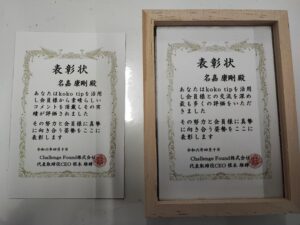 表彰状
名嘉 康剛 殿
あなたはkoko tipを活用
し会員様から素晴らしい
コメントを頂戴しその実
績が評価されました
その努力と会員様に真摯
に向き合う姿勢をここに
表彰します
令和六年四月十日
Challenge Found株式会社
代表取締役CEO 根本
表彰状
名嘉 康剛 殿
あなたはkoko tipを活用
し会員様との交流を深め
最も多くの評価をいただ
きました
その努力と会員様に真摯
に向き合う姿勢をここに
表彰します
令和六年四月十日
Challenge Found株式会社
代表取締役CEO 根本